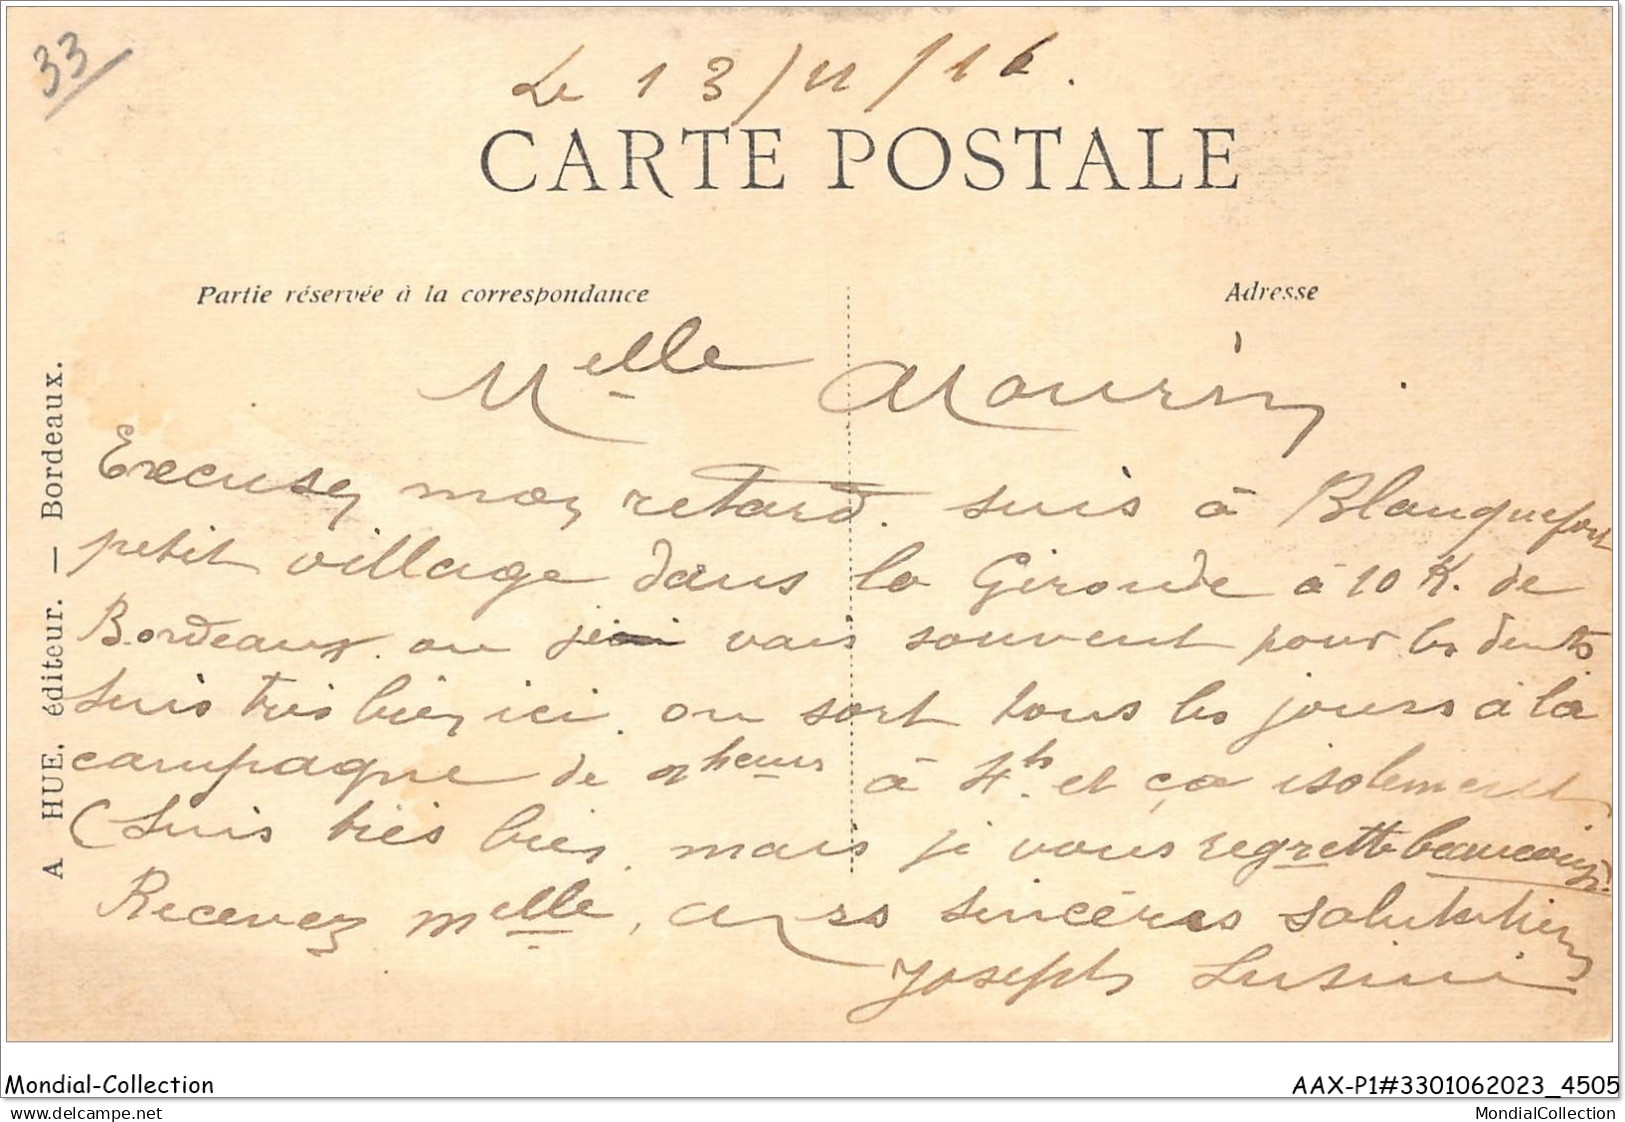 33
Le 13/11/16.
CARTE POSTALE
Partie réservée à la correspondance
Adresse
Melle Mourin
Excusez mon retard. suis à Blanquefort
petit village dans la Gironde à 10 K. de
Bordeaux. ou je vais souvent pour les dents
suis très bien ici. on sort tous les jours à la
campagne de heures à 4h. et ça isolement
(Suis très bien, mais je vous regrette beaucoup).
Recevez melle, mes sincères salutations
Joseph
A HUE, éditeur. — Bordeaux.
Mondial-Collection
AAX-P1#3301062023_4505
delcampe.net
MondialCollection